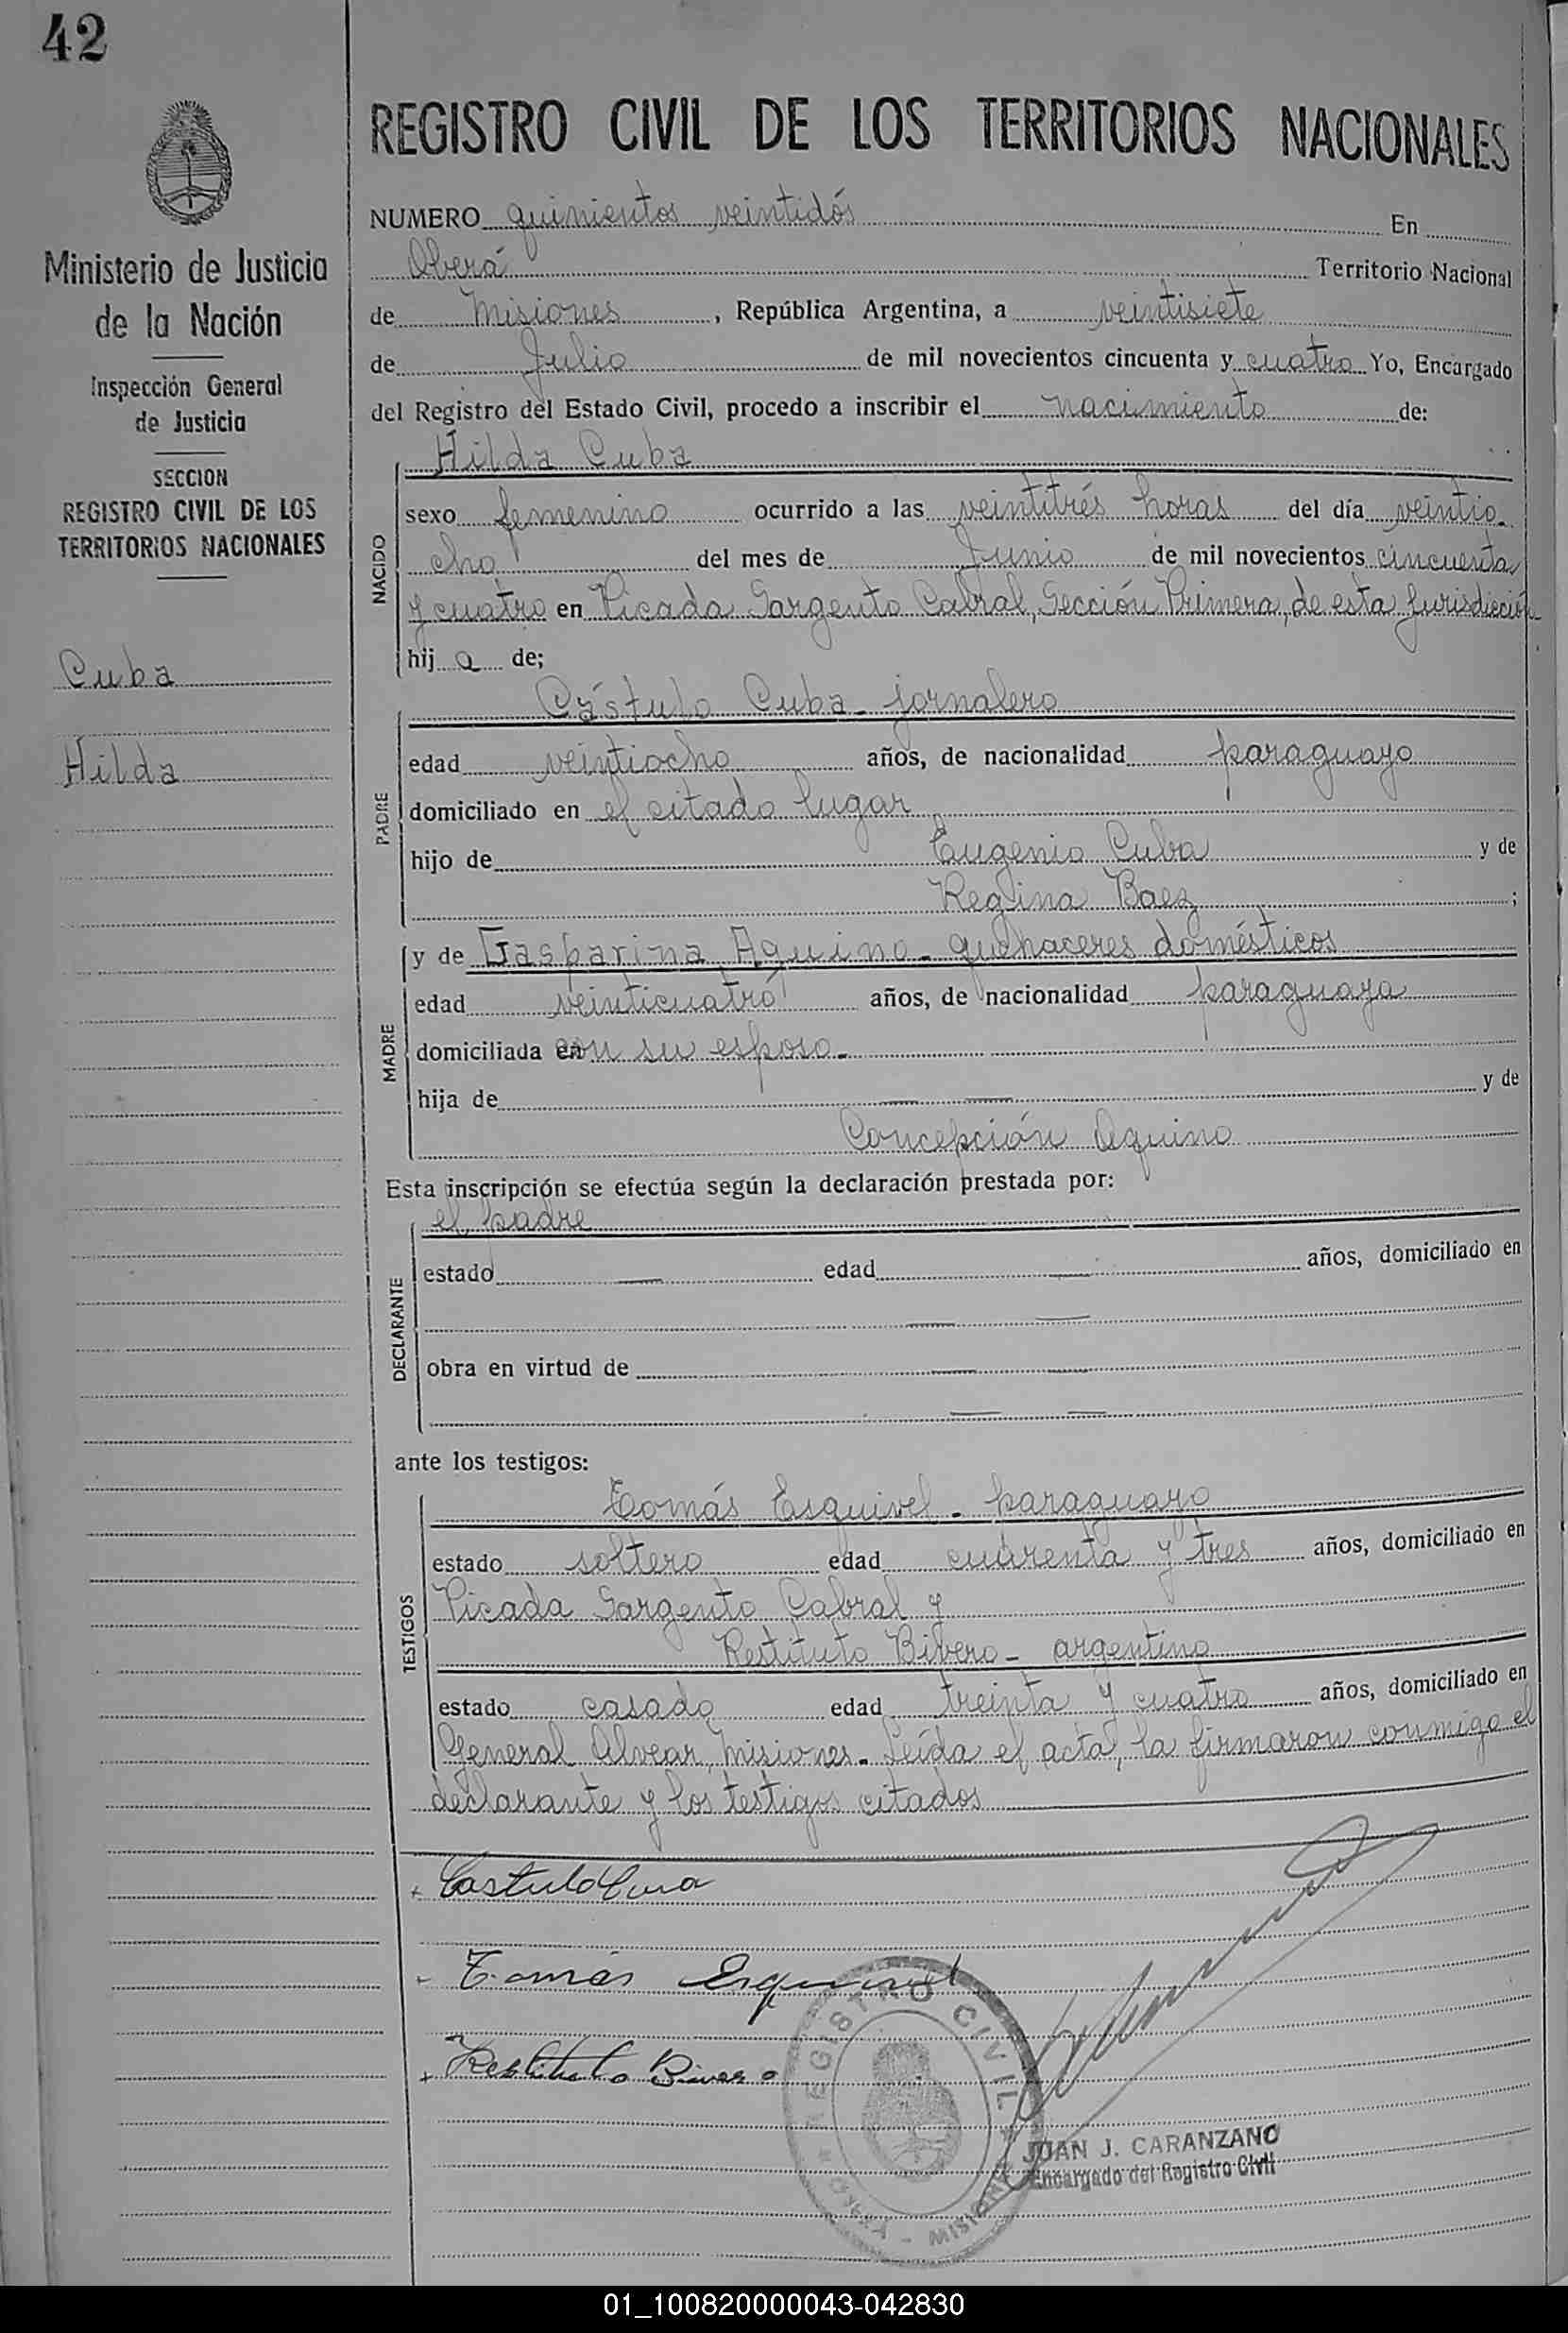 42
REGISTRO CIVIL DE LOS TERRITORIOS NACIONALES
Ministerio de Justicia
de la Nación
Inspección General
de Justicia
SECCION
REGISTRO CIVIL DE LOS
TERRITORIOS NACIONALES
Cuba
Hilda
NUMERO quinientos veintidós En
Oberá Territorio Nacional
de Misiones, República Argentina, a veintisiete
de Julio de mil novecientos cincuenta y cuatro Yo, Encargado
del Registro del Estado Civil, procedo a inscribir el nacimiento de:
NACIDO
Hilda Cuba
sexo femenino ocurrido a las veintitrés horas del día veintio-
cho del mes de Junio de mil novecientos cincuenta
y cuatro en Picada Sargento Cabral, Sección Primera, de esta Jurisdicción
hij a de;
PADRE
Cástulo Cuba - jornalero
edad veintiocho años, de nacionalidad paraguayo
domiciliado en el citado lugar
hijo de Eugenio Cuba y de
Regina Baez ;
MADRE
y de Gasparina Aquino - quehaceres domésticos
edad veinticuatro años, de nacionalidad paraguaya
domiciliada en con su esposo.-
hija de — — y de
Concepción Aquino
Esta inscripción se efectúa según la declaración prestada por:
DECLARANTE
el padre
estado — edad — años, domiciliado en
— —
obra en virtud de — —
— —
ante los testigos:
TESTIGOS
Tomás Esquivel - paraguayo
estado soltero edad cuarenta y tres años, domiciliado en
Picada Sargento Cabral y
Restituto Bivero - argentino
estado casado edad treinta y cuatro años, domiciliado en
General Alvear, Misiones.- Leída el acta, la firmaron conmigo el
declarante y los testigos citados
Castulo Cuva
Tomás Esquivel
Restituto Rivero
REGISTRO CIVIL
OBERA - MISIONES
JUAN J. CARANZANO
Encargado del Registro Civil
01_100820000043-042830